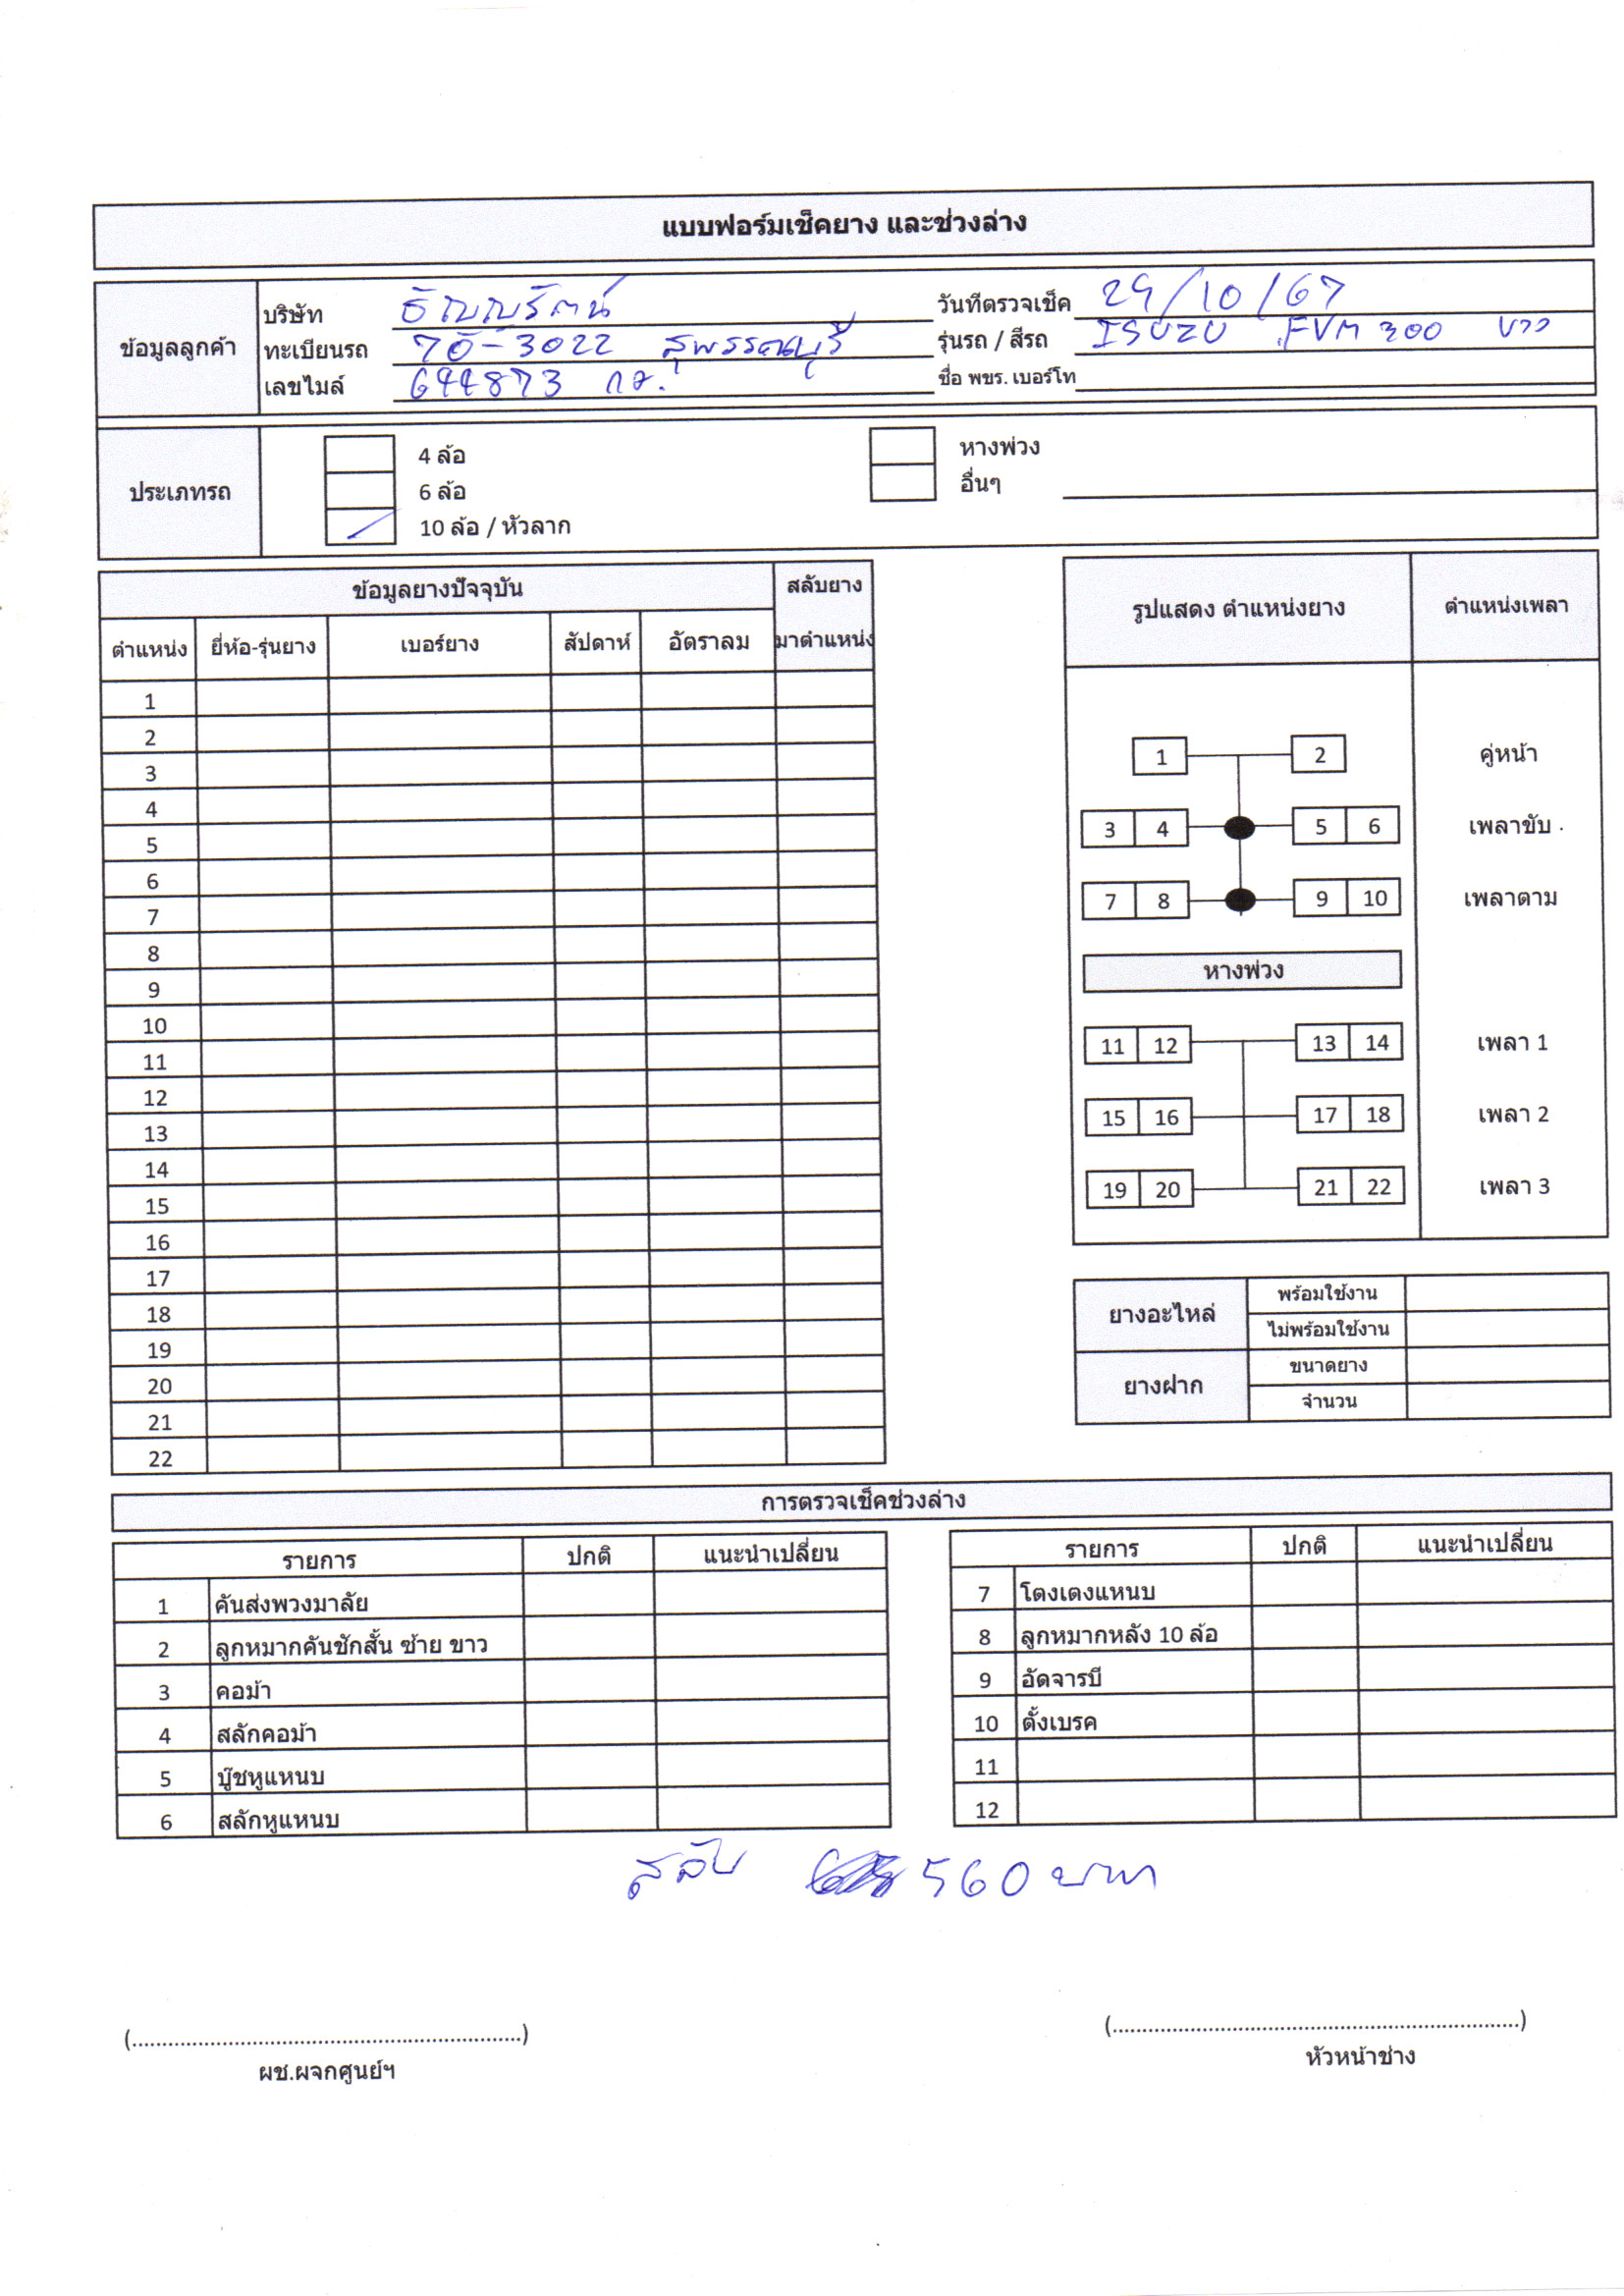 แบบฟอร์มเช็คยาง และช่วงล่าง
ข้อมูลลูกค้า
บริษัท ธัญญรัตน์ วันทีตรวจเช็ค 29/10/67
ทะเบียนรถ 70-3022 สุพรรณบุรี รุ่นรถ / สีรถ ISUZU FVM 300 ขาว
เลขไมล์ 644873 กม. ชื่อ พขร. เบอร์โท
ประเภทรถ
4 ล้อ หางพ่วง
6 ล้อ อื่นๆ
10 ล้อ / หัวลาก
ข้อมูลยางปัจจุบัน สลับยาง
ตำแหน่ง ยี่ห้อ-รุ่นยาง เบอร์ยาง สัปดาห์ อัตราลม มาตำแหน่ง
1
2
3
4
5
6
7
8
9
10
11
12
13
14
15
16
17
18
19
20
21
22
รูปแสดง ตำแหน่งยาง ตำแหน่งเพลา
1 2 คู่หน้า
3 4 5 6 เพลาขับ
7 8 9 10 เพลาตาม
หางพ่วง
11 12 13 14 เพลา 1
15 16 17 18 เพลา 2
19 20 21 22 เพลา 3
ยางอะไหล่ พร้อมใช้งาน
ไม่พร้อมใช้งาน
ยางฝาก ขนาดยาง
จำนวน
การตรวจเช็คช่วงล่าง
รายการ ปกติ แนะนำเปลี่ยน
1 คันส่งพวงมาลัย
2 ลูกหมากคันชักสั้น ซ้าย ขาว
3 คอม้า
4 สลักคอม้า
5 บู๊ชหูแหนบ
6 สลักหูแหนบ
รายการ ปกติ แนะนำเปลี่ยน
7 โตงเตงแหนบ
8 ลูกหมากหลัง 10 ล้อ
9 อัดจารบี
10 ตั้งเบรค
11
12
สลับ 560 บาท
(..................................................................)
ผช.ผจกศูนย์ฯ
(.....................................................................)
หัวหน้าช่าง